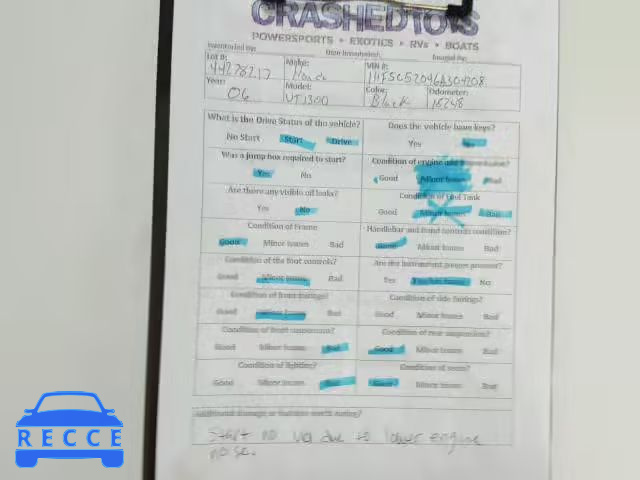 CRASHEDTOYS
POWERSPORTS • EXOTICS • RVs • BOATS
Inventoried By: Date Inventoried: Imaged By:
Lot #: Make: VIN #:
44278217 Honda 1HFSC52046A304208
Year: Model: Color: Odometer:
06 VT1300 Black 18248
What is the Drive Status of the vehicle? Does the vehicle have keys?
No Start Start Drive Yes No
Was a jump box required to start? Condition of engine and
Yes No Good Minor Issues Bad
Are there any visible oil leaks? Condition of Fuel Tank
Yes No Good Minor Issues Bad
Condition of Frame Handlebar and hand controls condition?
Good Minor Issues Bad Good Minor Issues Bad
Condition of the foot controls? Are the instrument gauges present?
Good Minor Issues Bad Yes No
Condition of front fairings? Condition of side fairings?
Good Minor Issues Bad Good Minor Issues Bad
Condition of front suspension? Condition of rear suspension?
Good Minor Issues Bad Good Minor Issues Bad
Condition of lighting? Condition of seats?
Good Minor Issues Bad Good Minor Issues Bad
Additional damage or features worth noting?
Start no due to lower engine
noise.
RECCE